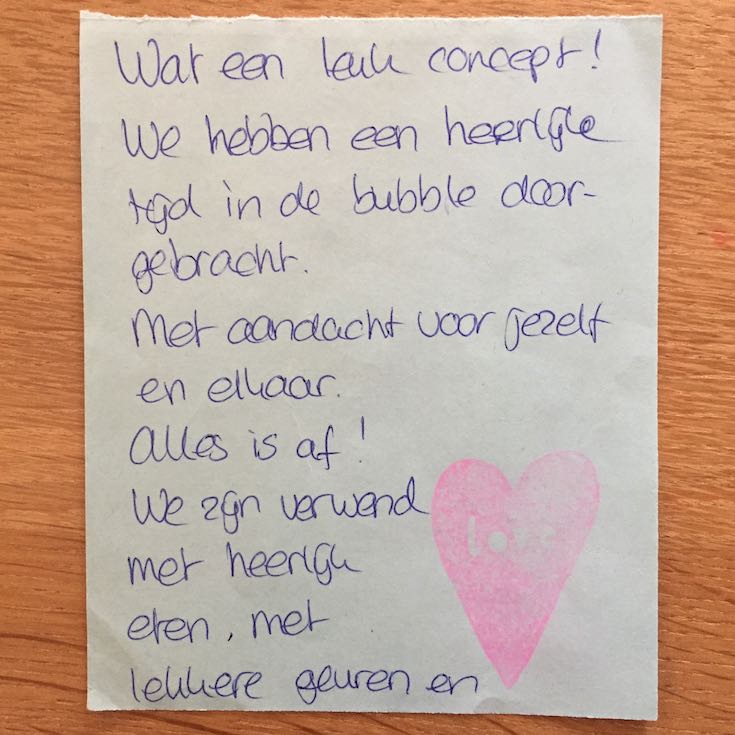 Wat een leuk concept!
We hebben een heerlijke
tijd in de bubble door-
gebracht.
Met aandacht voor jezelf
en elkaar.
Alles is af!
We zijn verwend
met heerlijk
eten, met
lekkere geuren en
love